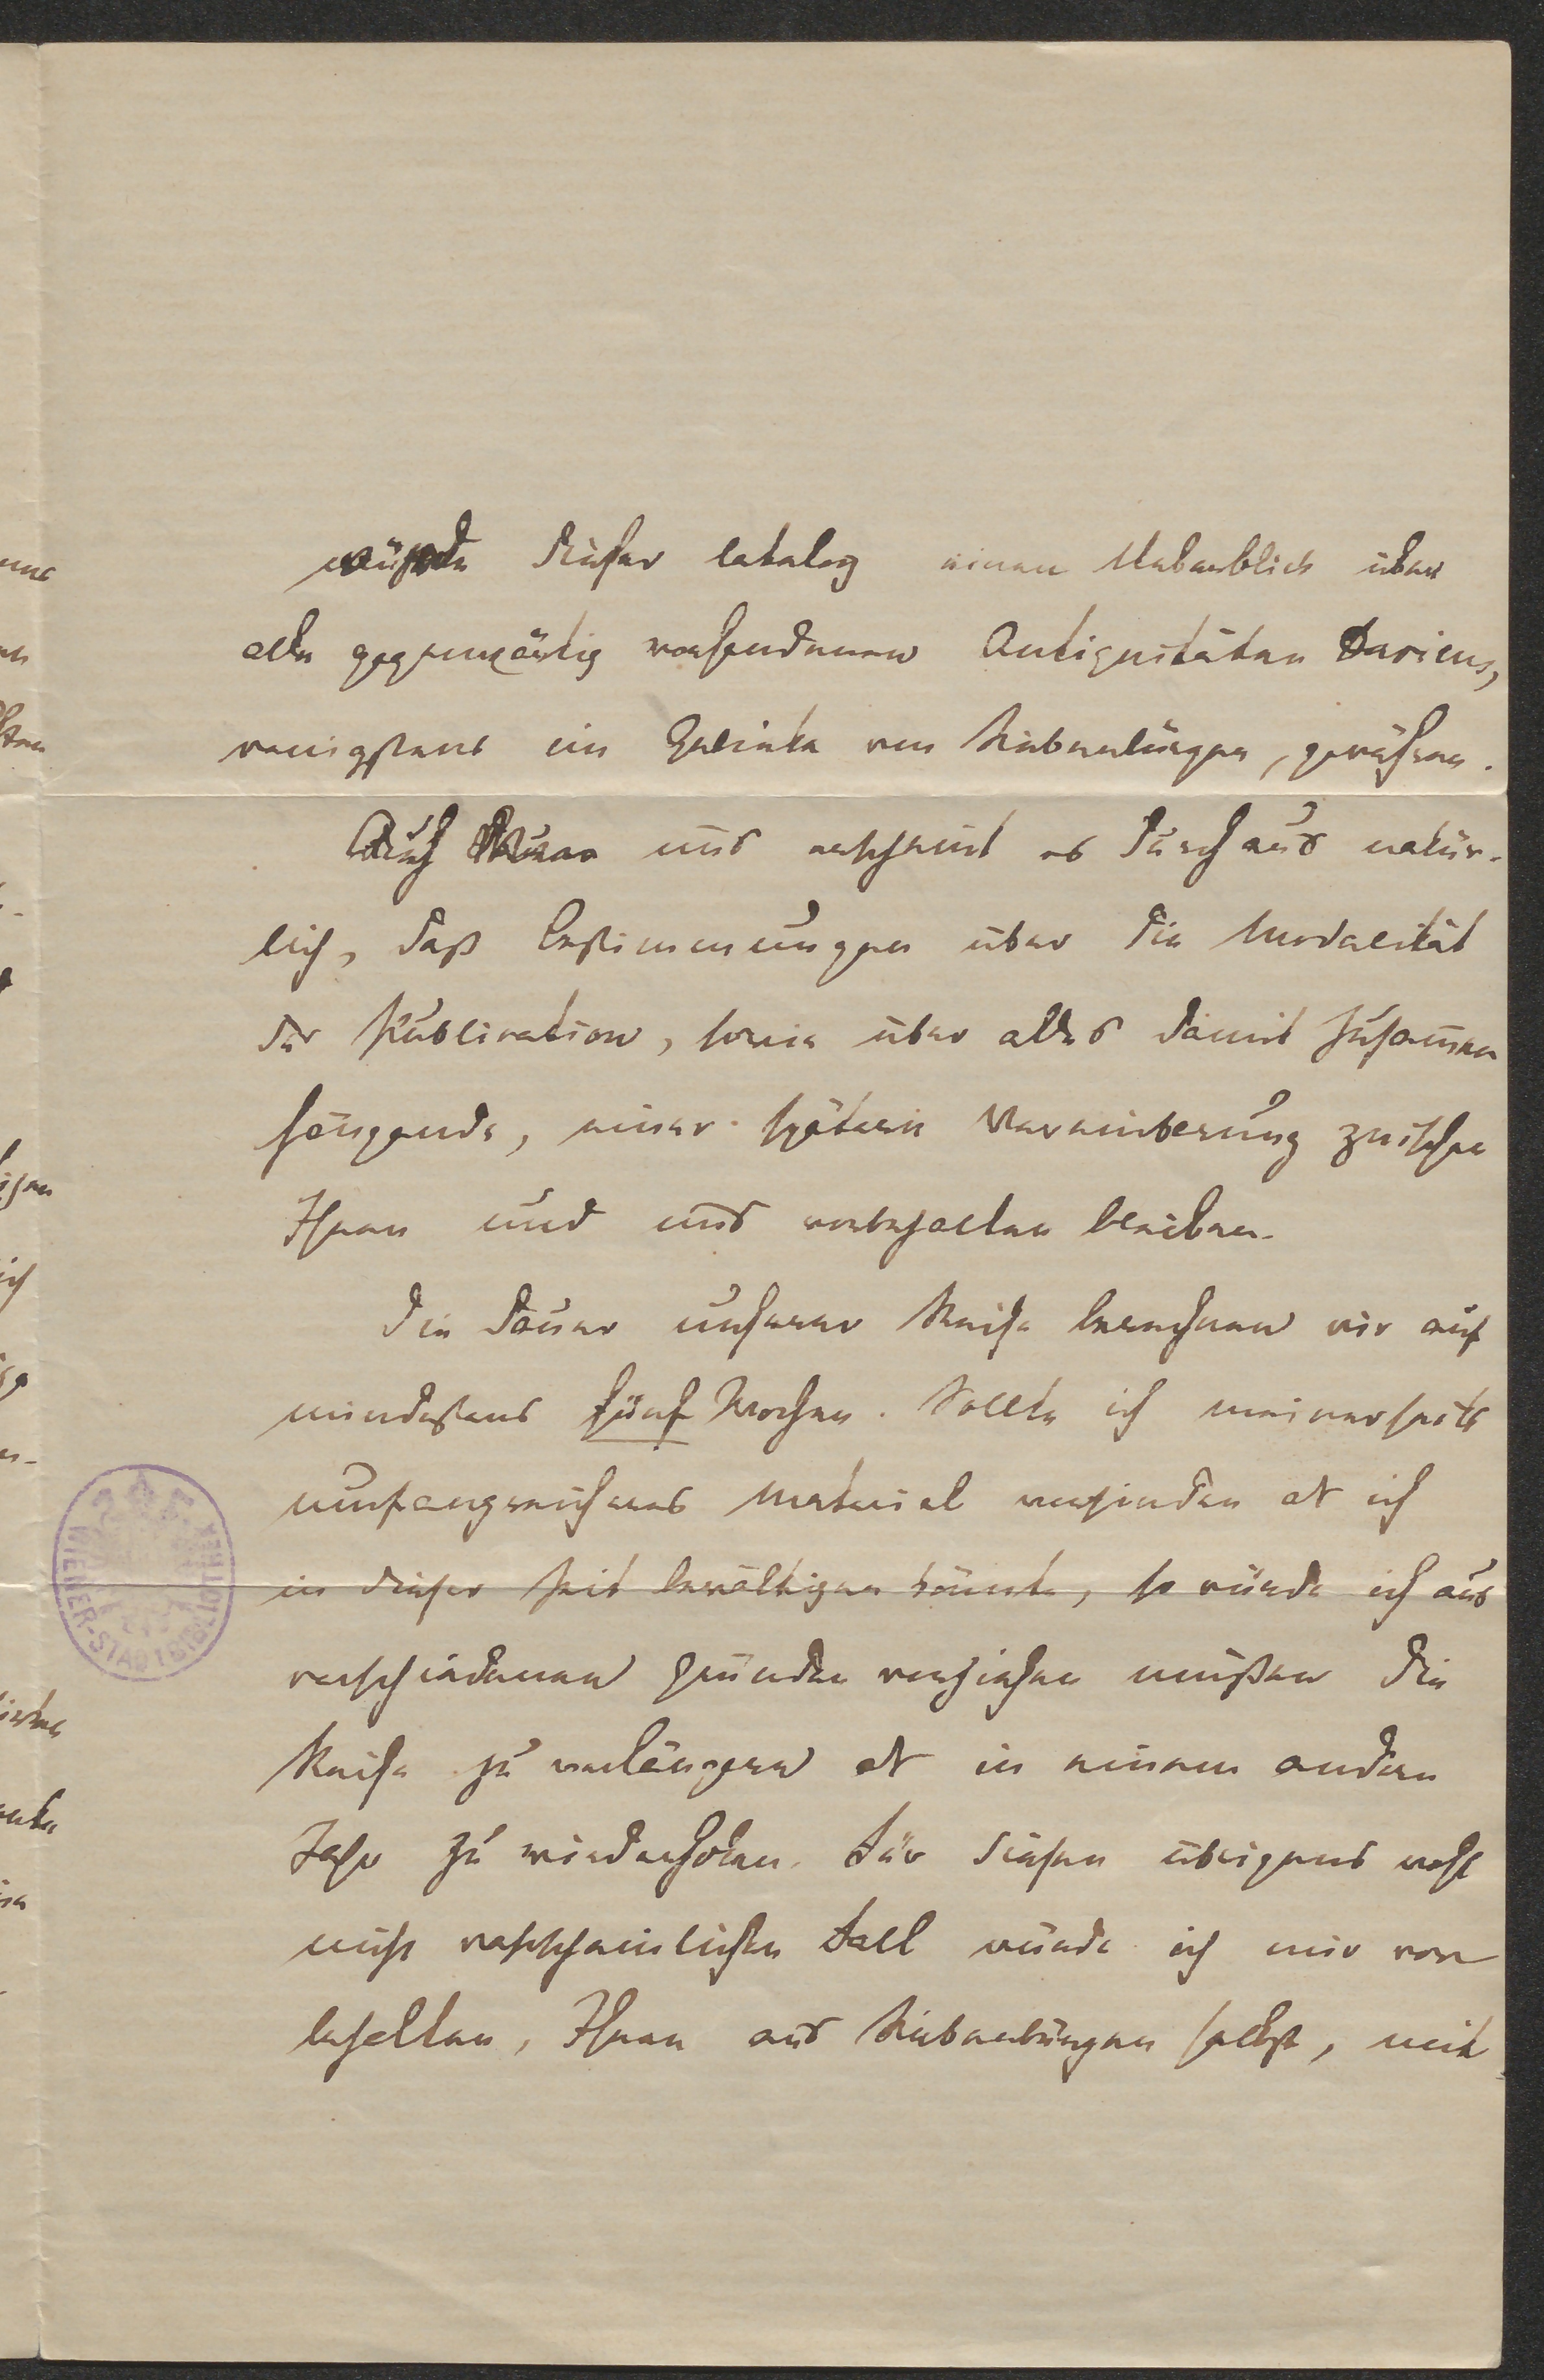 würde dieser Catalog einen Ueberblick über
alle gegenwärtig vorhandenen Antiquitäten Daciens,
wenigstens im Gebiete von Siebenbürgen, gewähren.
Auch uns erscheint es durchaus natür-
lich, daß Bestimmungen über die Modalität
der Publication, sowie über alles damit Zusammen
hängende, einer spätern Vereinberung zwischen
Ihnen und uns vorbehalten bleiben.
Die Dauer unserer Reise berechnen wir auf
mindestens fünf Wochen. Sollte ich meinerseits
umfangreicheres Material vorfinden als ich
in dieser Zeit bewältigen könnte, so würde ich aus
verschiedenen Gründen vorziehen müßen die
Reise zu verlängern als in einem andern
Jahr zu wiederholen. Für diesen übrigens wohl
nicht wahrscheinlichen Fall würde ich mir vor
behalten, Ihnen aus Siebenbürgen selbst, mit
WIENER-STADTBIBLIOTHEK